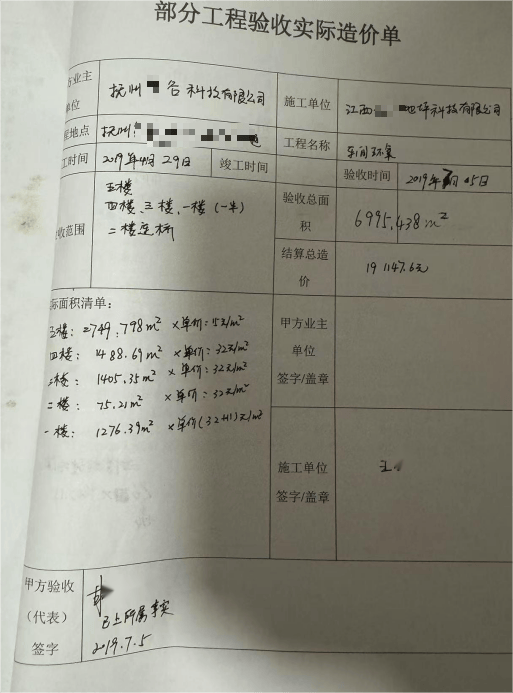 部分工程验收实际造价单
方业主
单位
抚州 谷科技有限公司
施工单位
江西 地坪科技有限公司
程地点
抚州:
工程名称
车间环氧
工时间
2019年4月29日
竣工时间
验收时间
2019年7月05日
收范围
五楼
四楼、三楼、一楼(一半)
二楼连桥
验收总面
积
6995.438m²
结算总造
价
191147.6元
际面积清单:
五楼: 2749.798m² ×单价:15元/m²
四楼: 1488.69m² ×单价:32元/m²
三楼: 1405.35m² ×单价:32元/m²
二楼: 75.21m² ×单价:32元/m²
一楼: 1276.39m² ×单价(32+1)元/m²
甲方业主
单位
签字/盖章
施工单位
签字/盖章
王
甲方验收
(代表)
签字
已上所属事实
2019.7.5